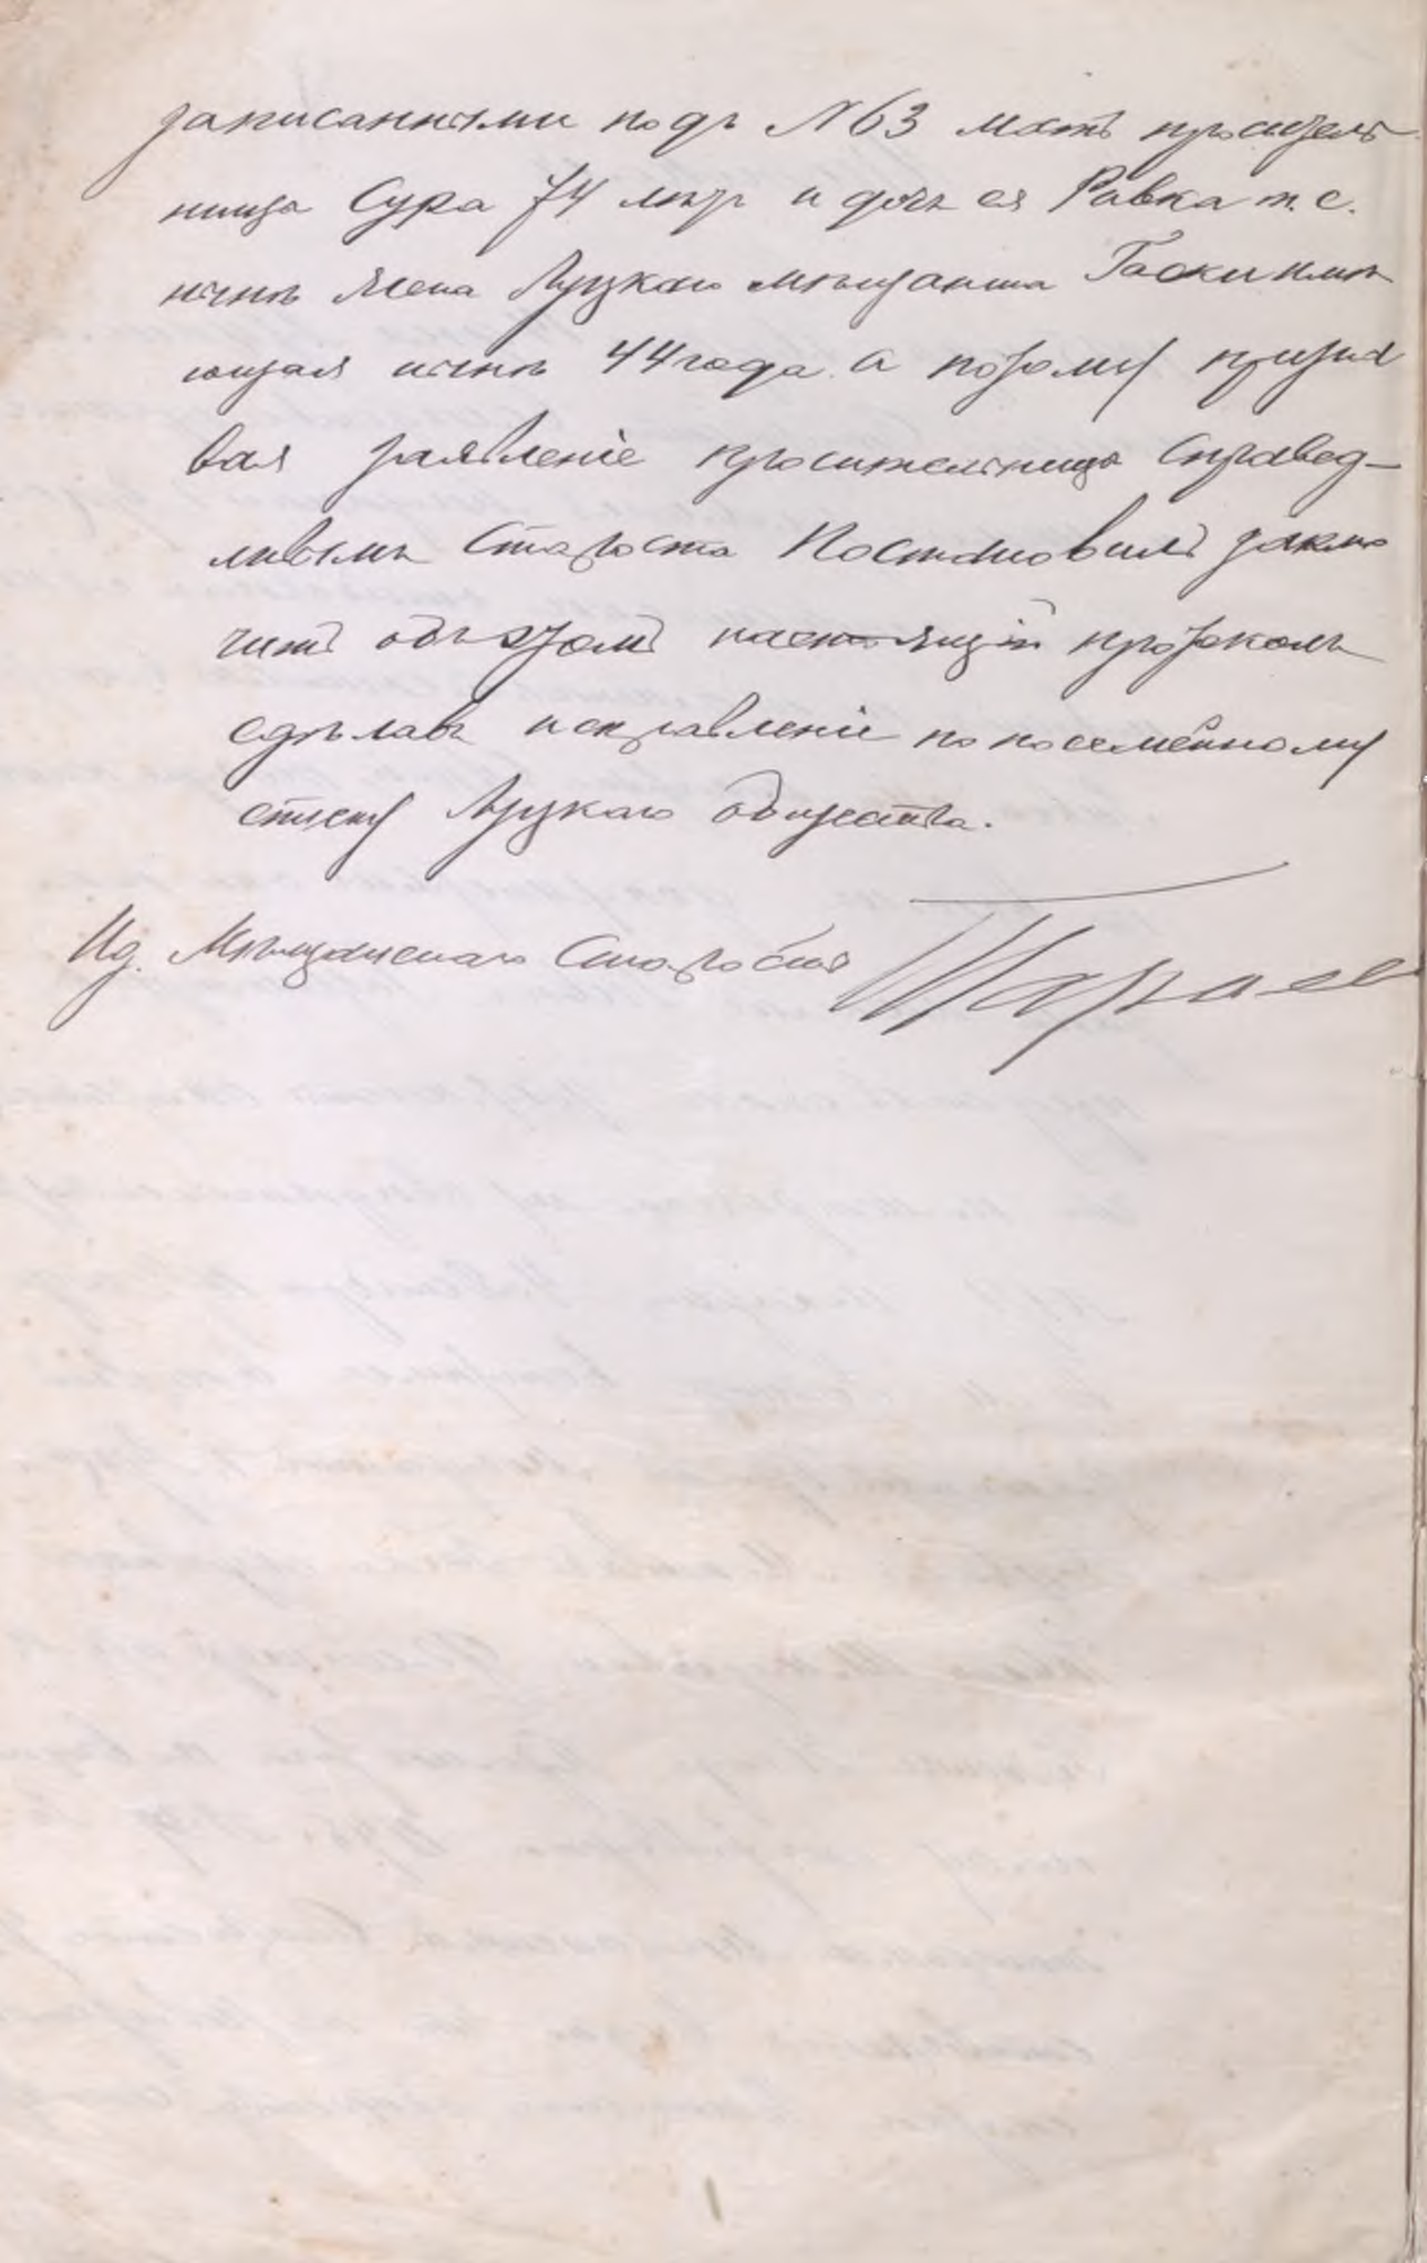 записанными подъ №63 мать проситель
ница Сура 74 лѣтъ и дочь ея Равка т.е.
нынѣ жена Луцкаго мѣщанина имѣ
ющая нынѣ 44 года. а потому призна
вая заявленіе просительницы справед-
ливымъ Староста Постановилъ заклю
чить объ этомъ настоящій протоколъ
сдѣлавъ исправленіе по посемейному
списку Луцкаго общества.
Ид. Мѣщанскаго Старосты